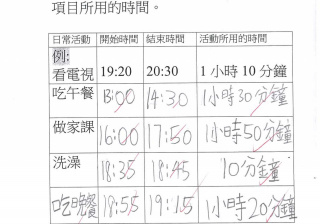 項目所用的時間。
日常活動 開始時間 結束時間 活動所用的時間
例:
看電視 19:20 20:30 1 小時 10 分鐘
吃午餐 13:00 14:30 1小時30分鐘
做家課 16:00 17:50 1小時50分鐘
洗澡 18:35 18:45 10分鐘
吃晚餐 18:55 19:15 1小時20分鐘